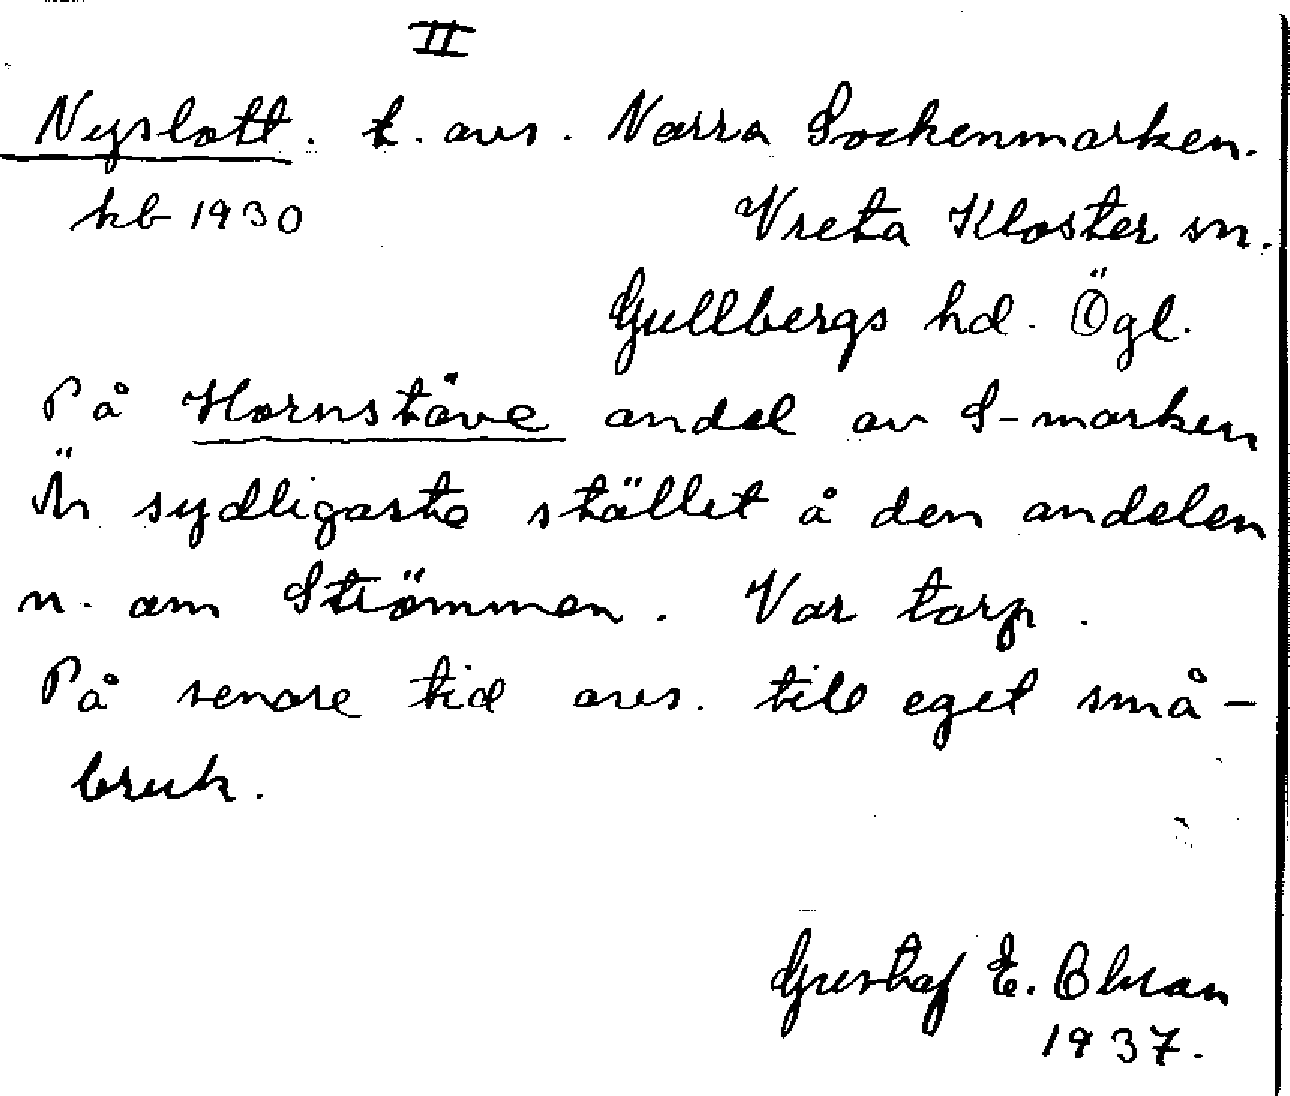 II
Nyslott. t. avs. Norra Sockenmarken.
kb 1930 Vreta Kloster sn.
Gullbergs hd. Ögl.
På Hornstöve andel av S-marken
Är sydligaste stället å den andelen
n. om Strömmen. Var torp.
På senare tid avs. till eget små-
bruk.
Gustaf E. Olsson
1937.